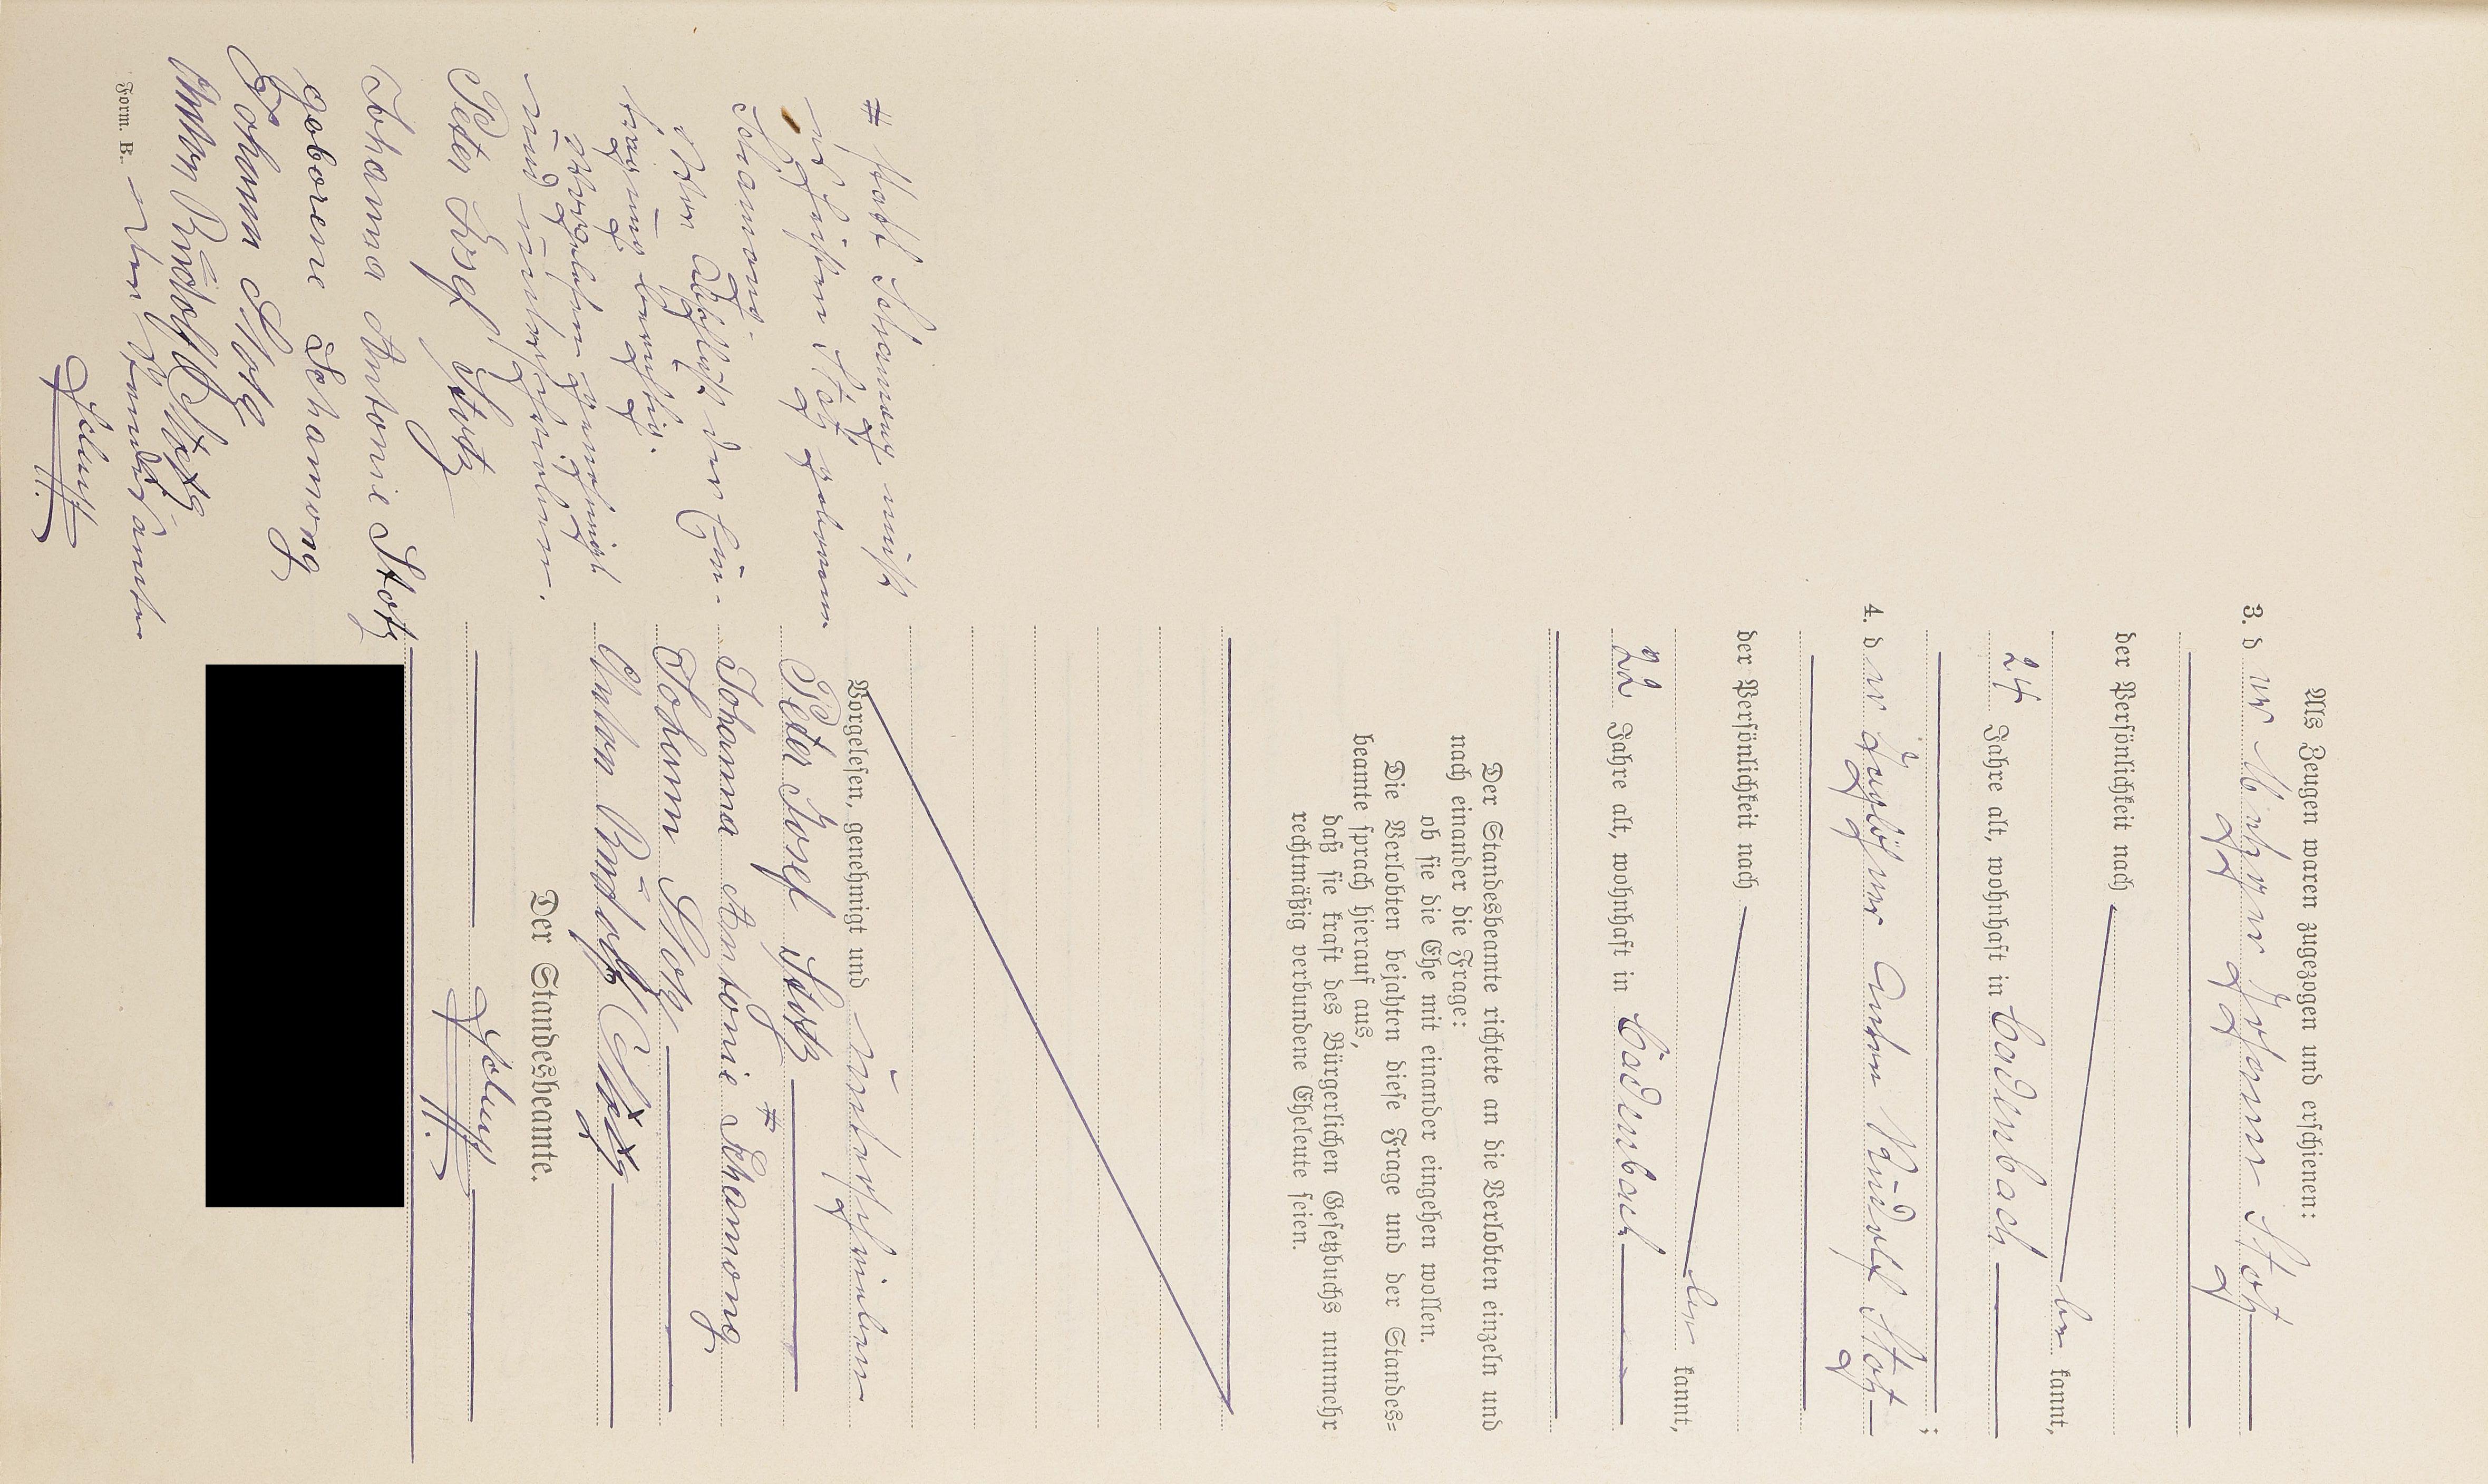 Als Zeugen waren zugezogen und erschienen:
3. der Metzger Johann Stotz
der Persönlichkeit nach
be kannt,
24 Jahre alt, wohnhaft in Cadenbach
;
4. der Taglöhner Anton Rudolf Stotz
der Persönlichkeit nach
be kannt,
22 Jahre alt, wohnhaft in Cadenbach
Der Standesbeamte richtete an die Verlobten einzeln und
nach einander die Frage:
ob sie die Ehe mit einander eingehen wollen.
Die Verlobten bejahten diese Frage und der Standes-
beamte sprach hierauf aus,
daß sie kraft des Bürgerlichen Gesetzbuchs nunmehr
rechtmäßig verbundene Eheleute seien.
Vorgelesen, genehmigt und unterschrieben
Peter Josef Stotz
Johanna Antonie # Schamong
Johann Stotz
Anton Rudolf Stotz
Der Standesbeamte.
# statt Schamong muß
es heißen Stotz geborenen
Schamong.
Vor Abschluß der Ein-
tragung berichtigt.
Vorgelesen genehmigt
und unterschrieben.
Peter Josef Stotz
Johanna Antonie Stotz
geborene Schamong
Johann Stotz
Anton Rudolf Stotz
Der Standesbeamte
Form. B.